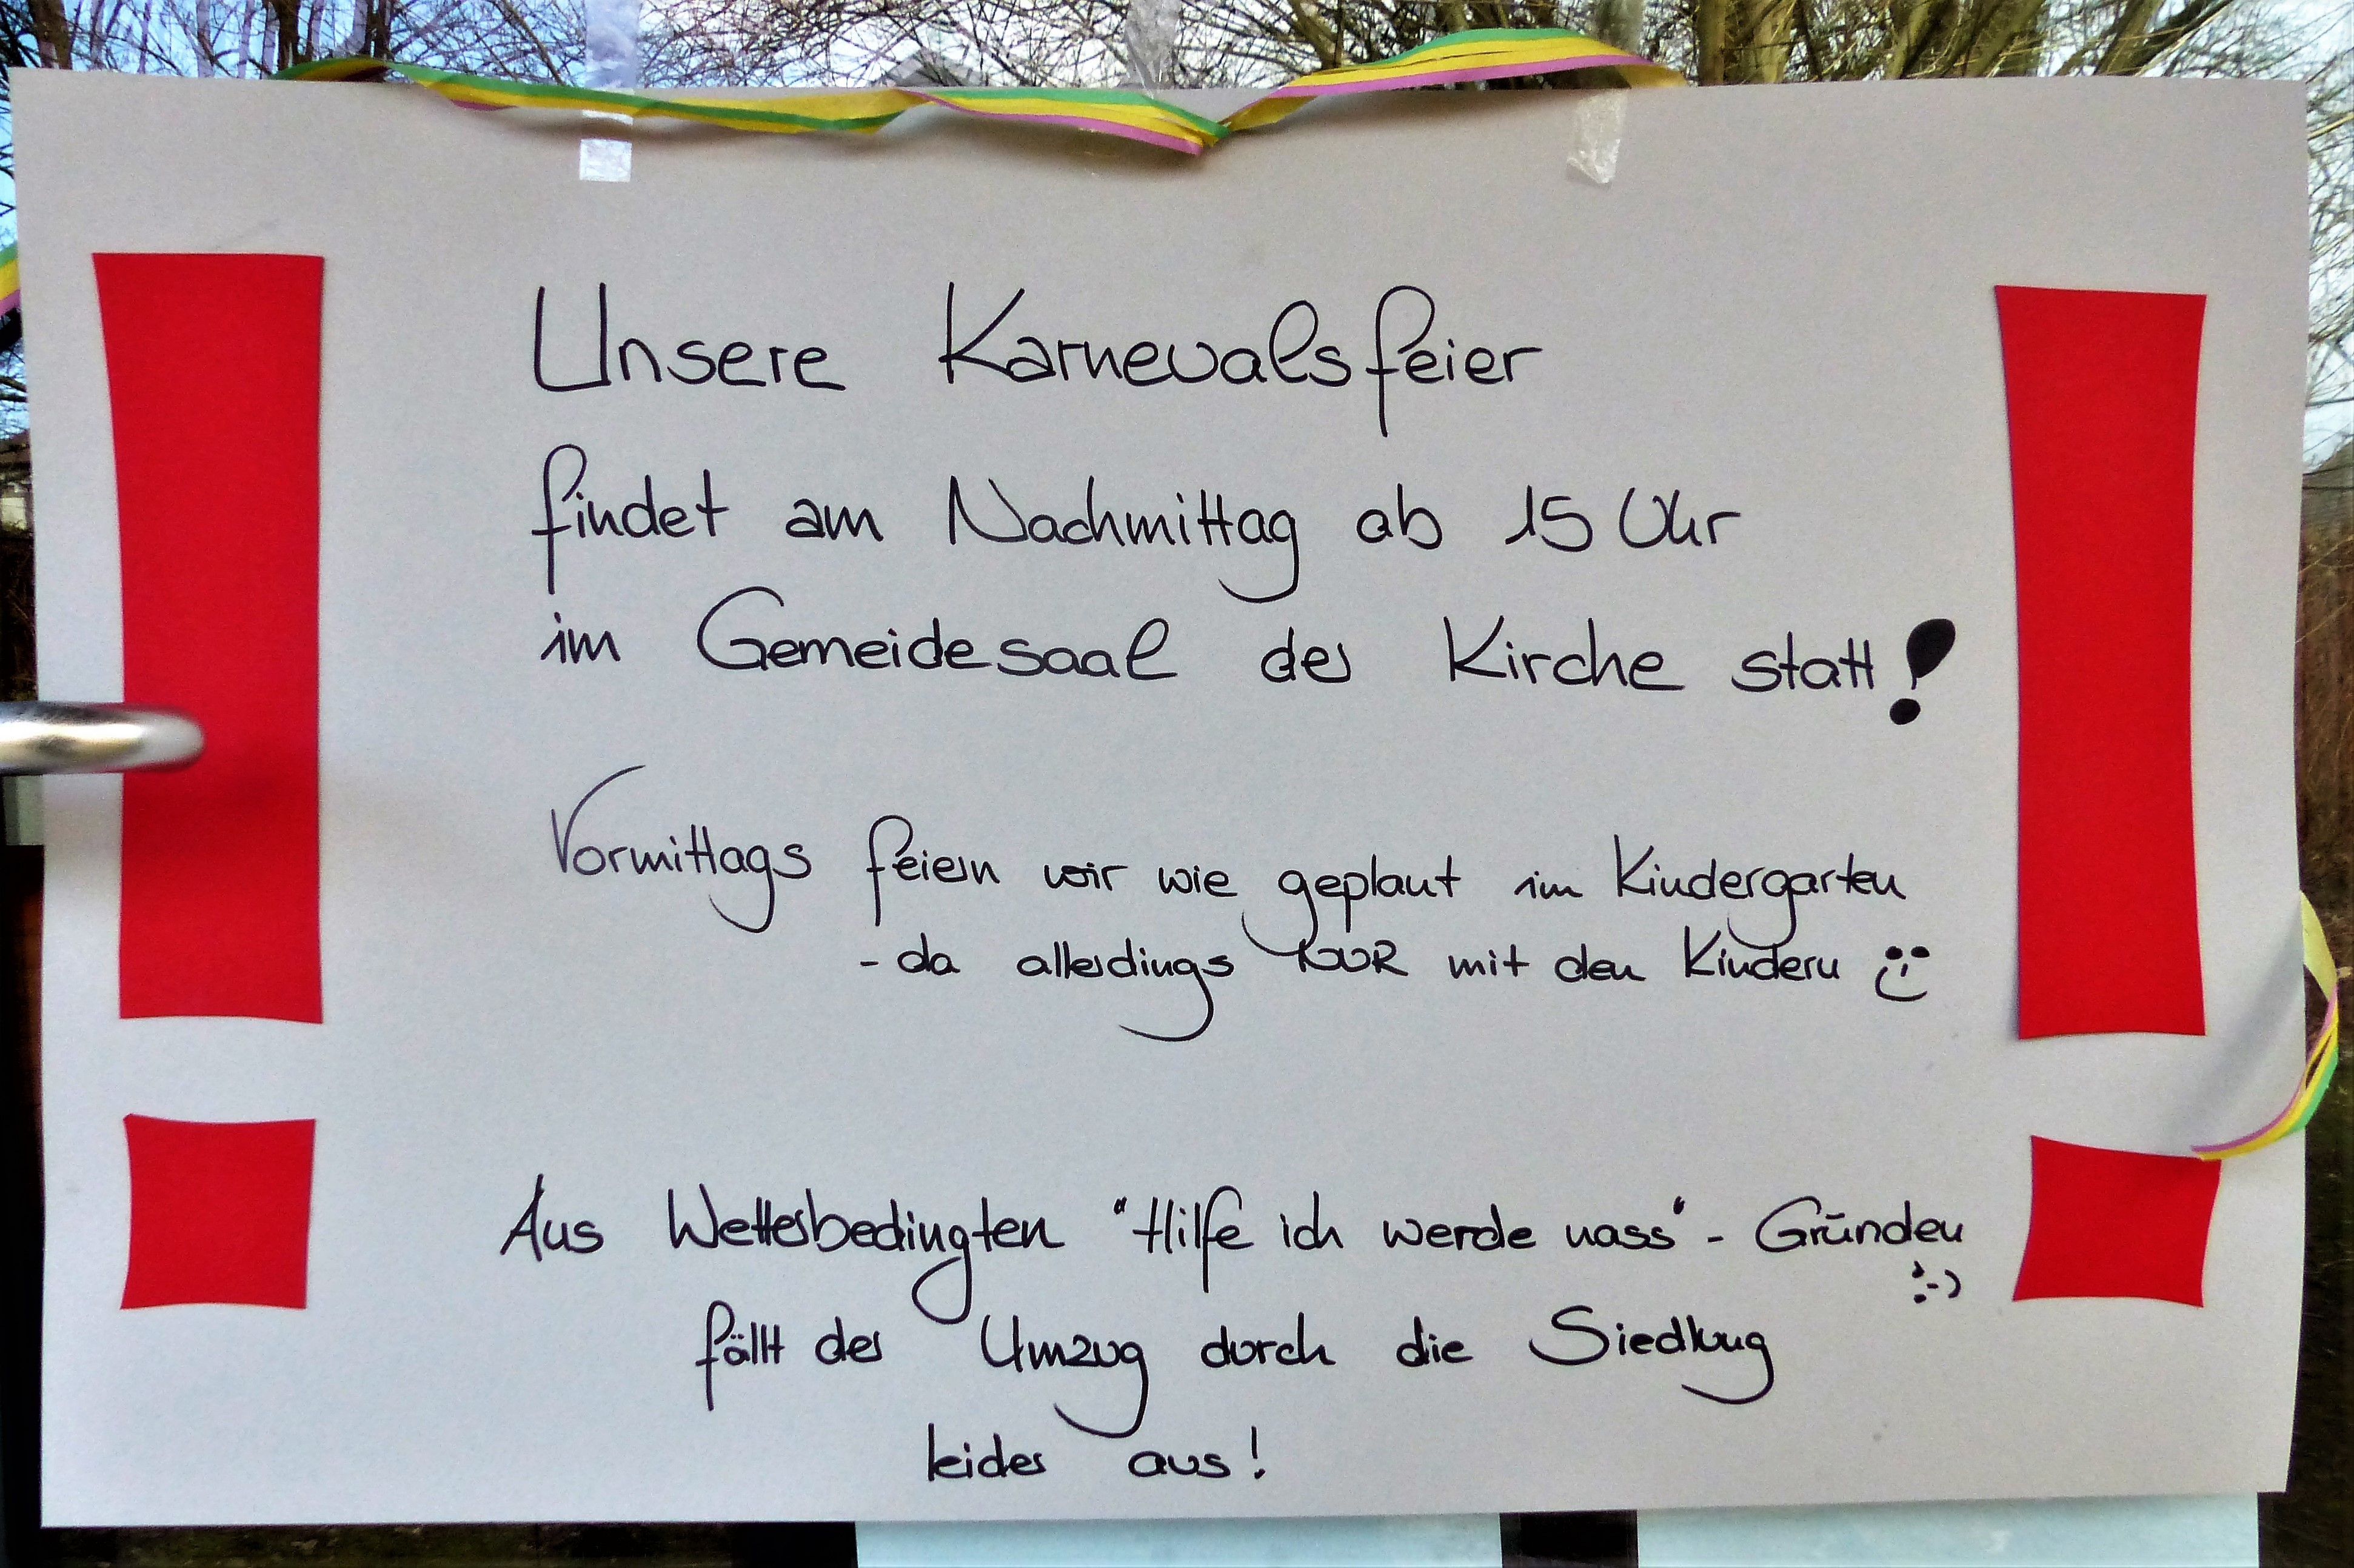 Unsere Karnevalsfeier
findet am Nachmittag ab 15 Uhr
im Gemeidesaal der Kirche statt!
Vormittags feiern wir wie geplant im Kindergarten
- da allerdings NUR mit den Kindern
Aus Wetterbedingten "Hilfe ich werde nass" - Gründen
;-)
fällt der Umzug durch die Siedlung
leider aus!